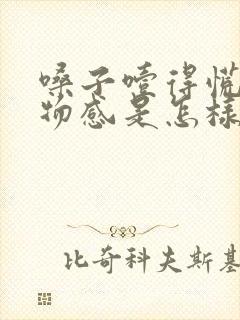 嗓子噎得慌
物感是怎样
比奇科夫斯基